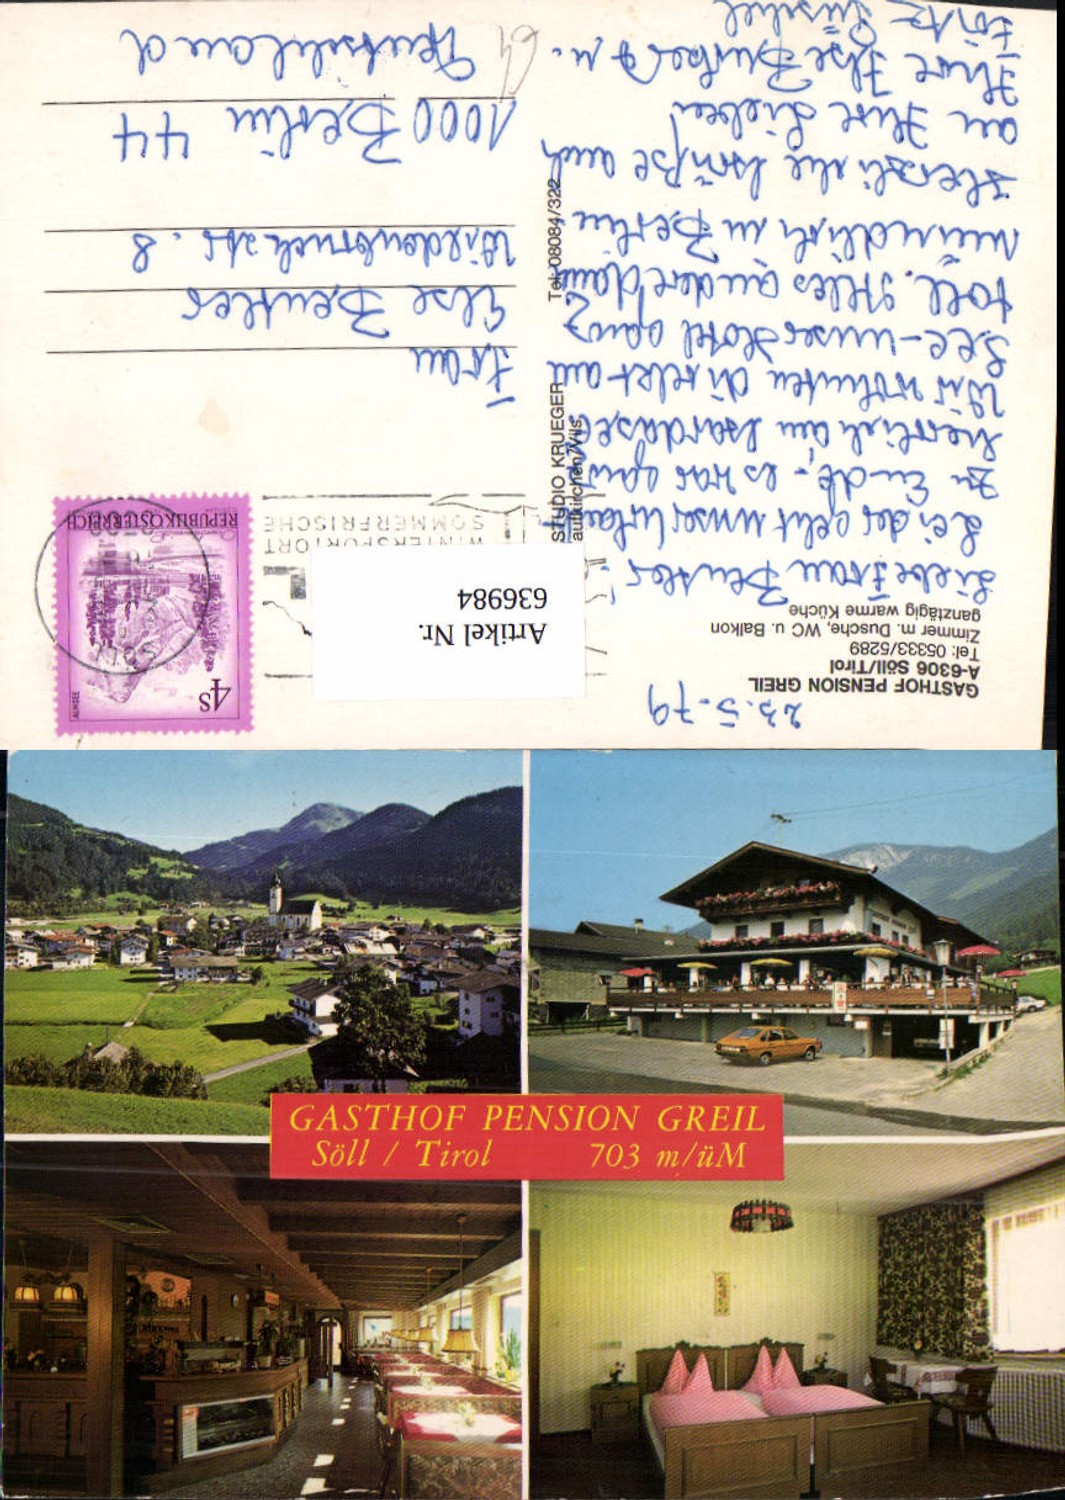 23.5.79
GASTHOF PENSION GREIL
A-6306 Söll/Tirol
Tel: 05333/5289
Zimmer m. Dusche, WC u. Balkon
ganztägig warme Küche
Liebe Frau Beutler!
Leider geht unser Urlaub
zu Ende, es war ganz
herrlich am Gardasee
Wir wohnten direkt am
See - unser Hotel ganz
toll. Alles andere dann
mündlich in Berlin
Herzliche Grüße auch
an Ihre Lieben
Ihre Ilse u.
Fritz
STUDIO KRUEGER
aufkirchen/Vils
Tel: 08084/322
Artikel Nr.
636984
WINTERSPORTORT
SOMMERFRISCHE
SÖLL
4S
ALMSEE
REPUBLIK ÖSTERREICH
Frau
Else Beutler
Wildenbruchstr. 8
1000 Berlin 44
Deutschland
64
GASTHOF PENSION GREIL
Söll / Tirol 703 m/üM